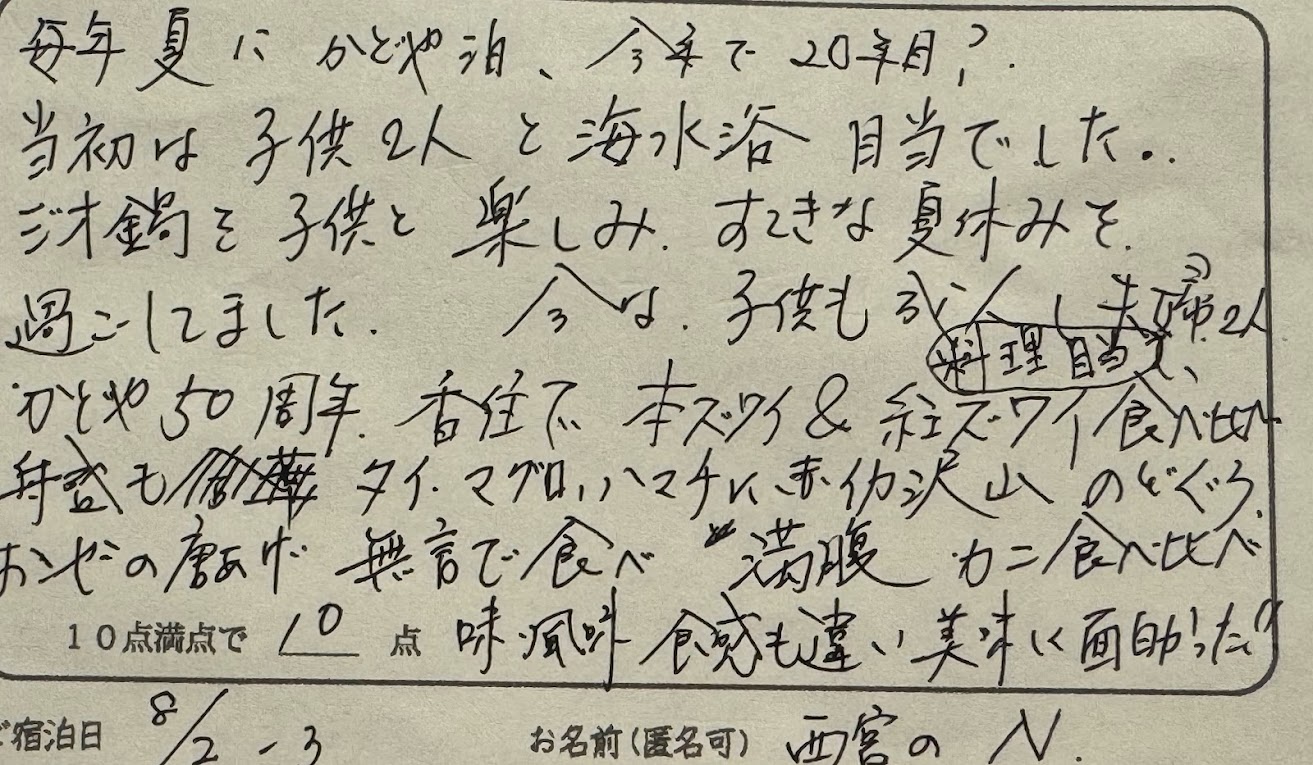 毎年夏にかどや泊、今年で20年目?.
当初は子供2人と海水浴目当でした..
ジオ鍋を子供と楽しみ.すてきな夏休みを.
過ごしてました. 今は.子供も 夫婦2人
料理目当で、
かどや50周年.香住で本ズワイ&紅ズワイ食べ比べ
舟盛も タイ.マグロ.ハマチに赤イカ沢山 のどぐろ
おンぜの唐あげ 無言で食べ 満腹 カニ食べ比べ
10点満点で 10 点 味.風味 食感も違い美味く面白かった!!
ご宿泊日 8/2-3 お名前(匿名可) 西宮のN.